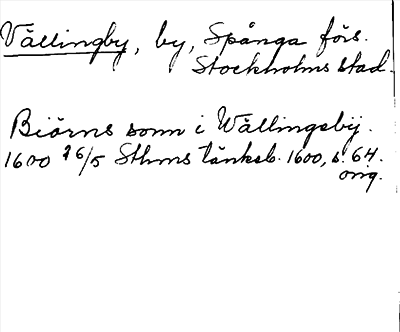 Vällingby, by, Spånga förs.
Stockholms stad.
Biörns sonn i Wällingsbij.
1600 26/5 Sthms tänkeb. 1600, s. 64.
orig.